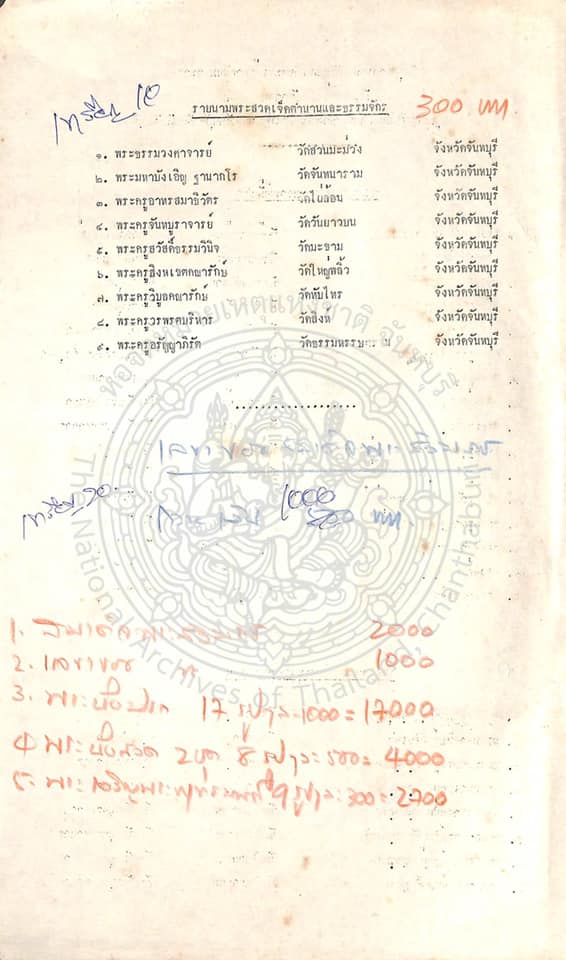 เหรียญ ๑๐
รายนามพระสวดเจ็ดตำนานและธรรมจักร 300 บาท
๑. พระธรรมวงศาจารย์ วัดสวนมะม่วง จังหวัดจันทบุรี
๒. พระมหาบังเอิญ ฐานากโร วัดจันทนาราม จังหวัดจันทบุรี
๓. พระครูอาทรสมาธิวัตร วัดไผ่ล้อม จังหวัดจันทบุรี
๔. พระครูจันทบูราจารย์ วัดวันยาวบน จังหวัดจันทบุรี
๕. พระครูสวัสดิ์ธรรมวินิจ วัดมะขาม จังหวัดจันทบุรี
๖. พระครูสิงหเขตคณารักษ์ วัดใหญ่พลิ้ว จังหวัดจันทบุรี
๗. พระครูวิบูลคณารักษ์ วัดทับไทร จังหวัดจันทบุรี
๘. พระครูวรพรตบริหาร วัดสิงห์ จังหวัดจันทบุรี
๙. พระครูอรัญญาภิรัต จังหวัดจันทบุรี
หอจดหมายเหตุแห่งชาติ จันทบุรี
เลขาของ สมเด็จพระสังฆราช
เหรียญ ๑๐
1000
500 บาท
The National Archives of Thailand, Chanthaburi
1. สมเด็จพระสังฆราช 2000
2. เลขาของ 1000
3. พระนั่งปรก 17 รูปๆละ 1000 = 17000
4 พระนั่งสวด 2 ชุด 8 รูปๆละ 500 = 4000
5. พระเจริญพระพุทธมนต์ 9 รูปๆละ 300 = 2700